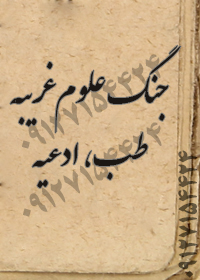 جنگ علوم غریبه
طب، ادعیه
۰۹۱۲۷۱۵۴۴۲۴
۰۹۱۲۷۱۵۴۴۲۴
۰۹۱۲۷۱۵۴۴۲۴